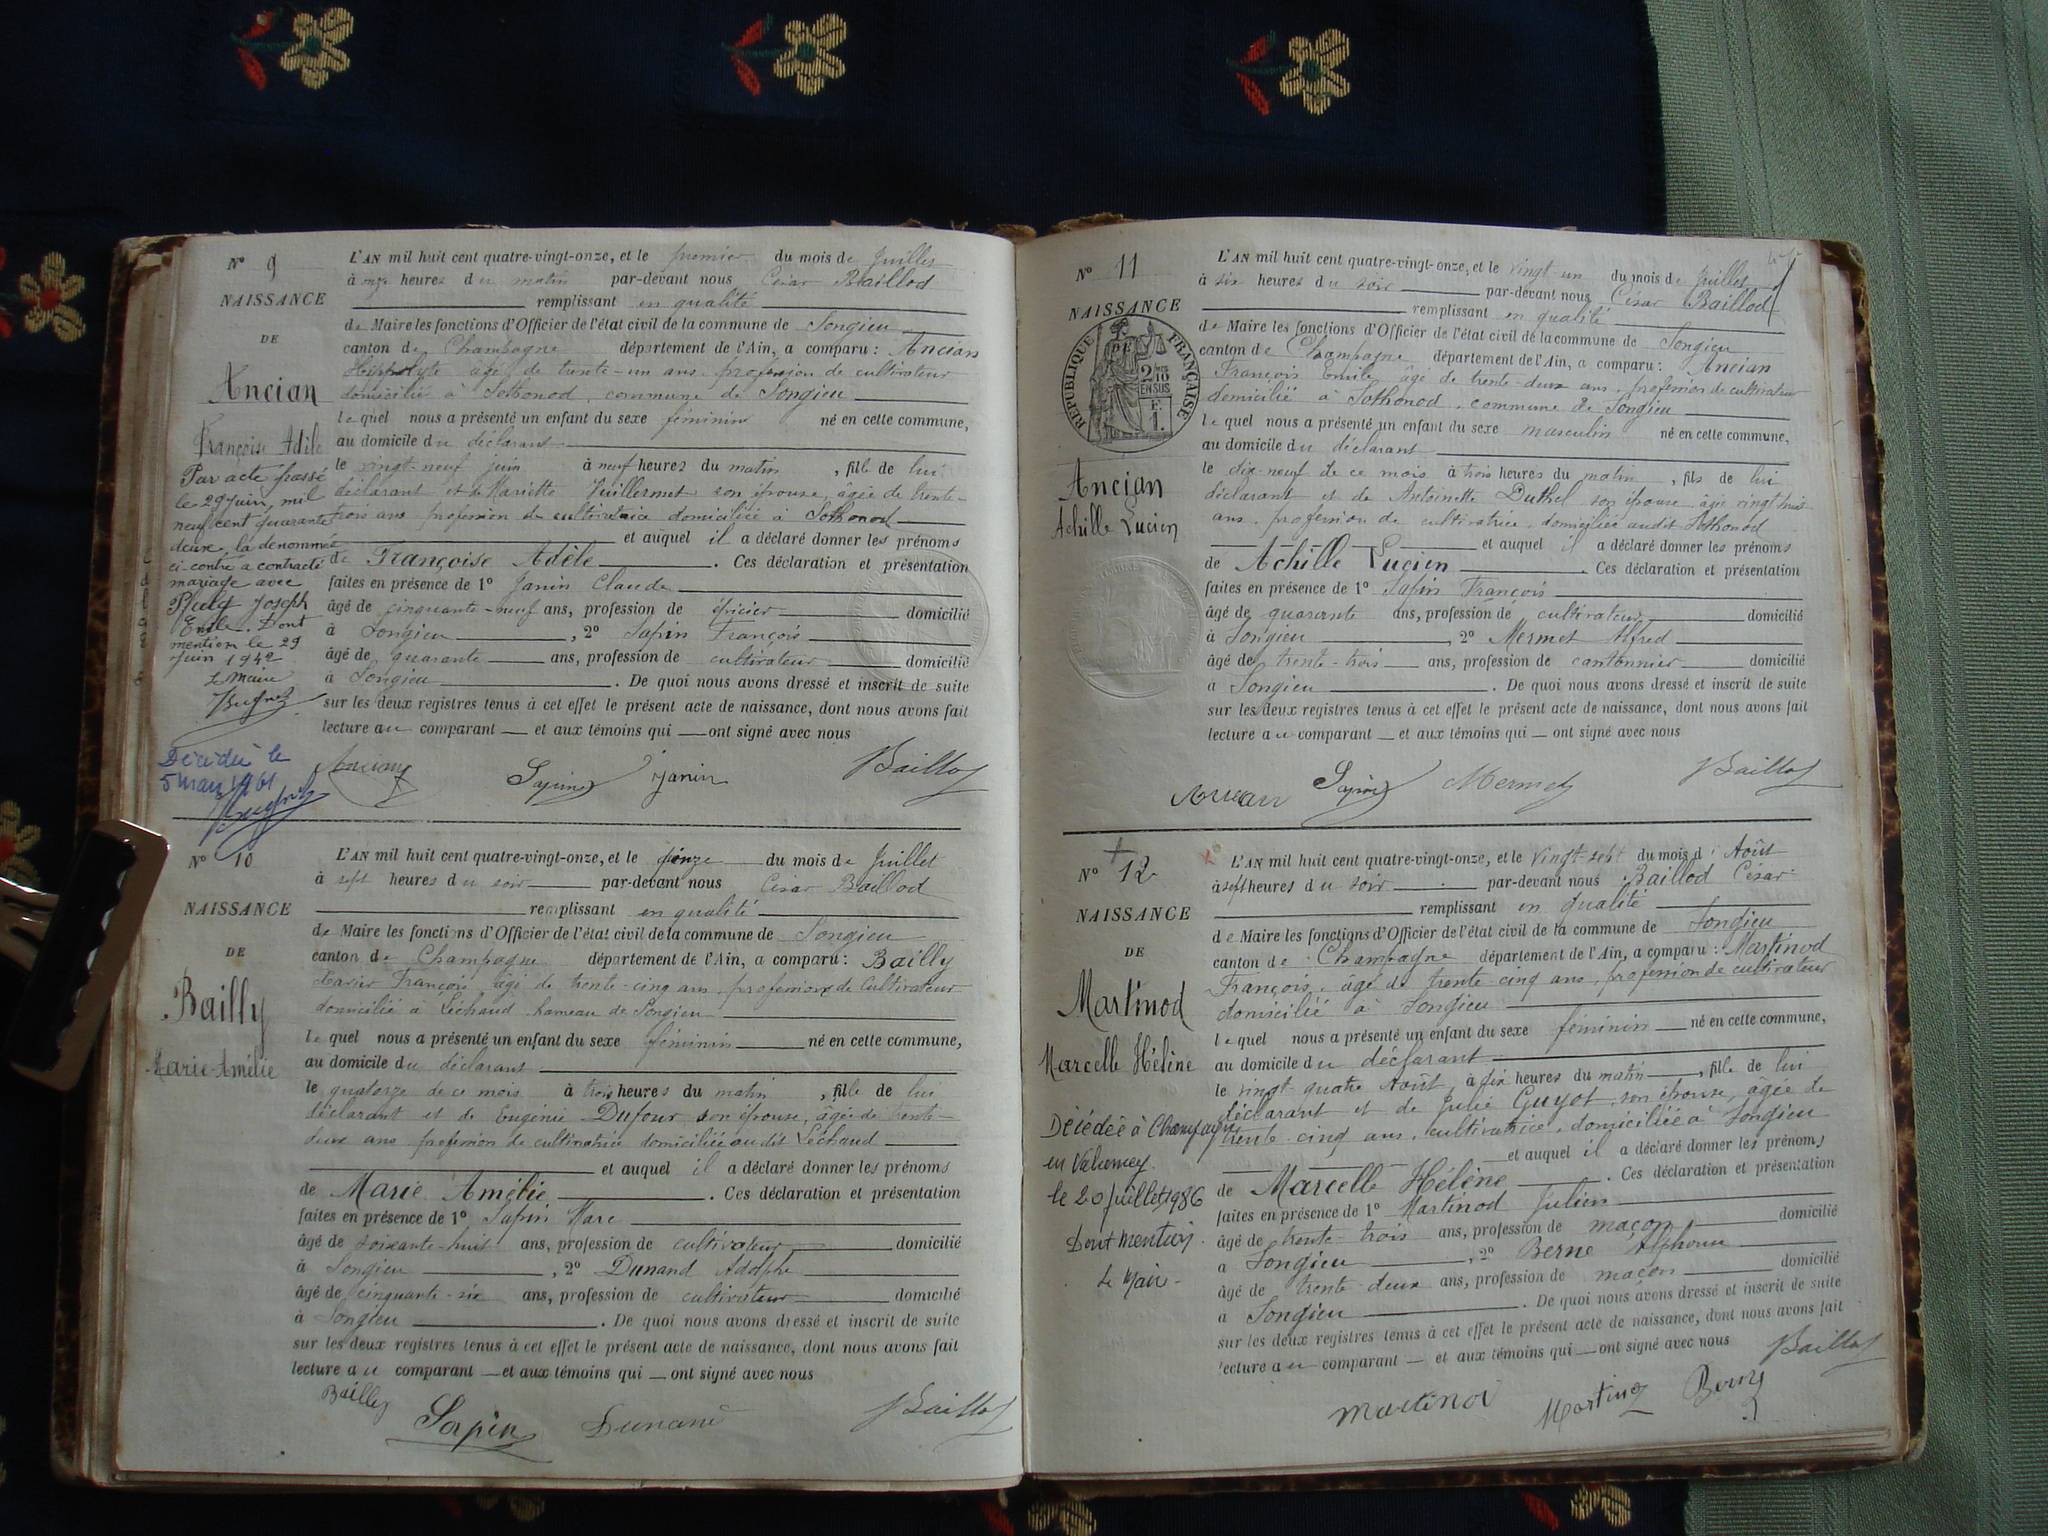 N° 9
NAISSANCE
DE
Ancian
Françoise Adèle
Par acte passé
le 29 juin, mil
neuf cent quarante
deux, la dénommée
ci contre a contracté
mariage avec
Joseph
Emile. Dont
mention le 29
juin 1942
Le Maire
Décédée le
5 mars 1961
L'AN mil huit cent quatre-vingt-onze, et le premier du mois de Juillet
à onze heures du matin par-devant nous César Baillod
remplissant en qualité
de Maire les fonctions d'Officier de l'état civil de la commune de Songieu
canton de Champagne département de l'Ain, a comparu : Ancian
Hippolyte âgé de trente-un ans profession de cultivateur
domicilié à Sothonod, commune de Songieu
lequel nous a présenté un enfant du sexe féminin né en cette commune,
au domicile du déclarant
le vingt-neuf juin à neuf heures du matin, fille de lui
déclarant et de Mariette Vuillermet son épouse, âgée de trente-
trois ans profession de cultivatrice domiciliée à Sothonod
et auquel il a déclaré donner les prénoms
de Françoise Adèle. Ces déclaration et présentation
faites en présence de 1° Janin Claude
âgé de cinquante-neuf ans, profession de épicier domicilié
à Songieu, 2° Sapin François
âgé de quarante ans, profession de cultivateur domicilié
à Songieu. De quoi nous avons dressé et inscrit de suite
sur les deux registres tenus à cet effet le présent acte de naissance, dont nous avons fait
lecture au comparant et aux témoins qui ont signé avec nous
Ancian Sapin Janin Baillod
N° 10
NAISSANCE
DE
Bailly
Marie-Amélie
L'AN mil huit cent quatre-vingt-onze, et le quinze du mois de Juillet
à sept heures du soir par-devant nous César Baillod
remplissant en qualité
de Maire les fonctions d'Officier de l'état civil de la commune de Songieu
canton de Champagne département de l'Ain, a comparu : Bailly
Xavier François âgé de trente-cinq ans profession de cultivateur
domicilié à Léchaud hameau de Songieu
lequel nous a présenté un enfant du sexe féminin né en cette commune,
au domicile du déclarant
le quatorze de ce mois à trois heures du matin, fille de lui
déclarant et de Eugénie Dufour son épouse, âgée de trente-
deux ans profession de cultivatrice domiciliée au dit Léchaud
et auquel il a déclaré donner les prénoms
de Marie Amélie. Ces déclaration et présentation
faites en présence de 1° Sapin Marc
âgé de soixante-huit ans, profession de cultivateur domicilié
à Songieu, 2° Dunand Adolphe
âgé de cinquante-six ans, profession de cultivateur domicilié
à Songieu. De quoi nous avons dressé et inscrit de suite
sur les deux registres tenus à cet effet le présent acte de naissance, dont nous avons fait
lecture au comparant et aux témoins qui ont signé avec nous
Bailly Sapin Dunand Baillod
N° 11
NAISSANCE
RÉPUBLIQUE FRANÇAISE
2/10 EN SUS
F.
1.
Ancian
Achille Lucien
L'AN mil huit cent quatre-vingt-onze, et le vingt-un du mois de Juillet
à six heures du soir par-devant nous César Baillod
remplissant en qualité
de Maire les fonctions d'Officier de l'état civil de la commune de Songieu
canton de Champagne département de l'Ain, a comparu : Ancian
François Emile âgé de trente-deux ans, profession de cultivateur
domicilié à Sothonod, commune de Songieu
lequel nous a présenté un enfant du sexe masculin né en cette commune,
au domicile du déclarant
le dix-neuf de ce mois à trois heures du matin, fils de lui
déclarant et de Antoinette Duthel son épouse âgée vingt huit
ans, profession de cultivatrice, domiciliée audit Sothonod
et auquel il a déclaré donner les prénoms
de Achille Lucien. Ces déclaration et présentation
faites en présence de 1° Sapin François
âgé de quarante ans, profession de cultivateur domicilié
à Songieu 2° Mermet Alfred
âgé de trente-trois ans, profession de cantonnier domicilié
à Songieu. De quoi nous avons dressé et inscrit de suite
sur les deux registres tenus à cet effet le présent acte de naissance, dont nous avons fait
lecture au comparant et aux témoins qui ont signé avec nous
Ancian Sapin Mermet Baillod
N° 12
NAISSANCE
DE
Martinod
Marcelle Hélène
Décédée à Champagne
en Valromey
le 20 juillet 1986
Dont mention
Le Maire
L'AN mil huit cent quatre-vingt-onze, et le vingt-sept du mois d'Août
à sept heures du soir par-devant nous Baillod César
remplissant en qualité
de Maire les fonctions d'Officier de l'état civil de la commune de Songieu
canton de Champagne département de l'Ain, a comparu : Martinod
François, âgé de trente cinq ans, profession de cultivateur
domicilié à Songieu
lequel nous a présenté un enfant du sexe féminin né en cette commune,
au domicile du déclarant
le vingt-quatre Août, à dix heures du matin, fille de lui
déclarant et de Julie Guyot, son épouse, âgée de
trente-cinq ans, cultivatrice, domiciliée à Songieu
et auquel il a déclaré donner les prénoms
de Marcelle Hélène. Ces déclaration et présentation
faites en présence de 1° Martinod Julien
âgé de trente-trois ans, profession de maçon domicilié
à Songieu, 2° Berne Alphonse
âgé de trente-deux ans, profession de maçon domicilié
à Songieu. De quoi nous avons dressé et inscrit de suite
sur les deux registres tenus à cet effet le présent acte de naissance, dont nous avons fait
lecture au comparant et aux témoins qui ont signé avec nous
Martinod Martinod Berne Baillod